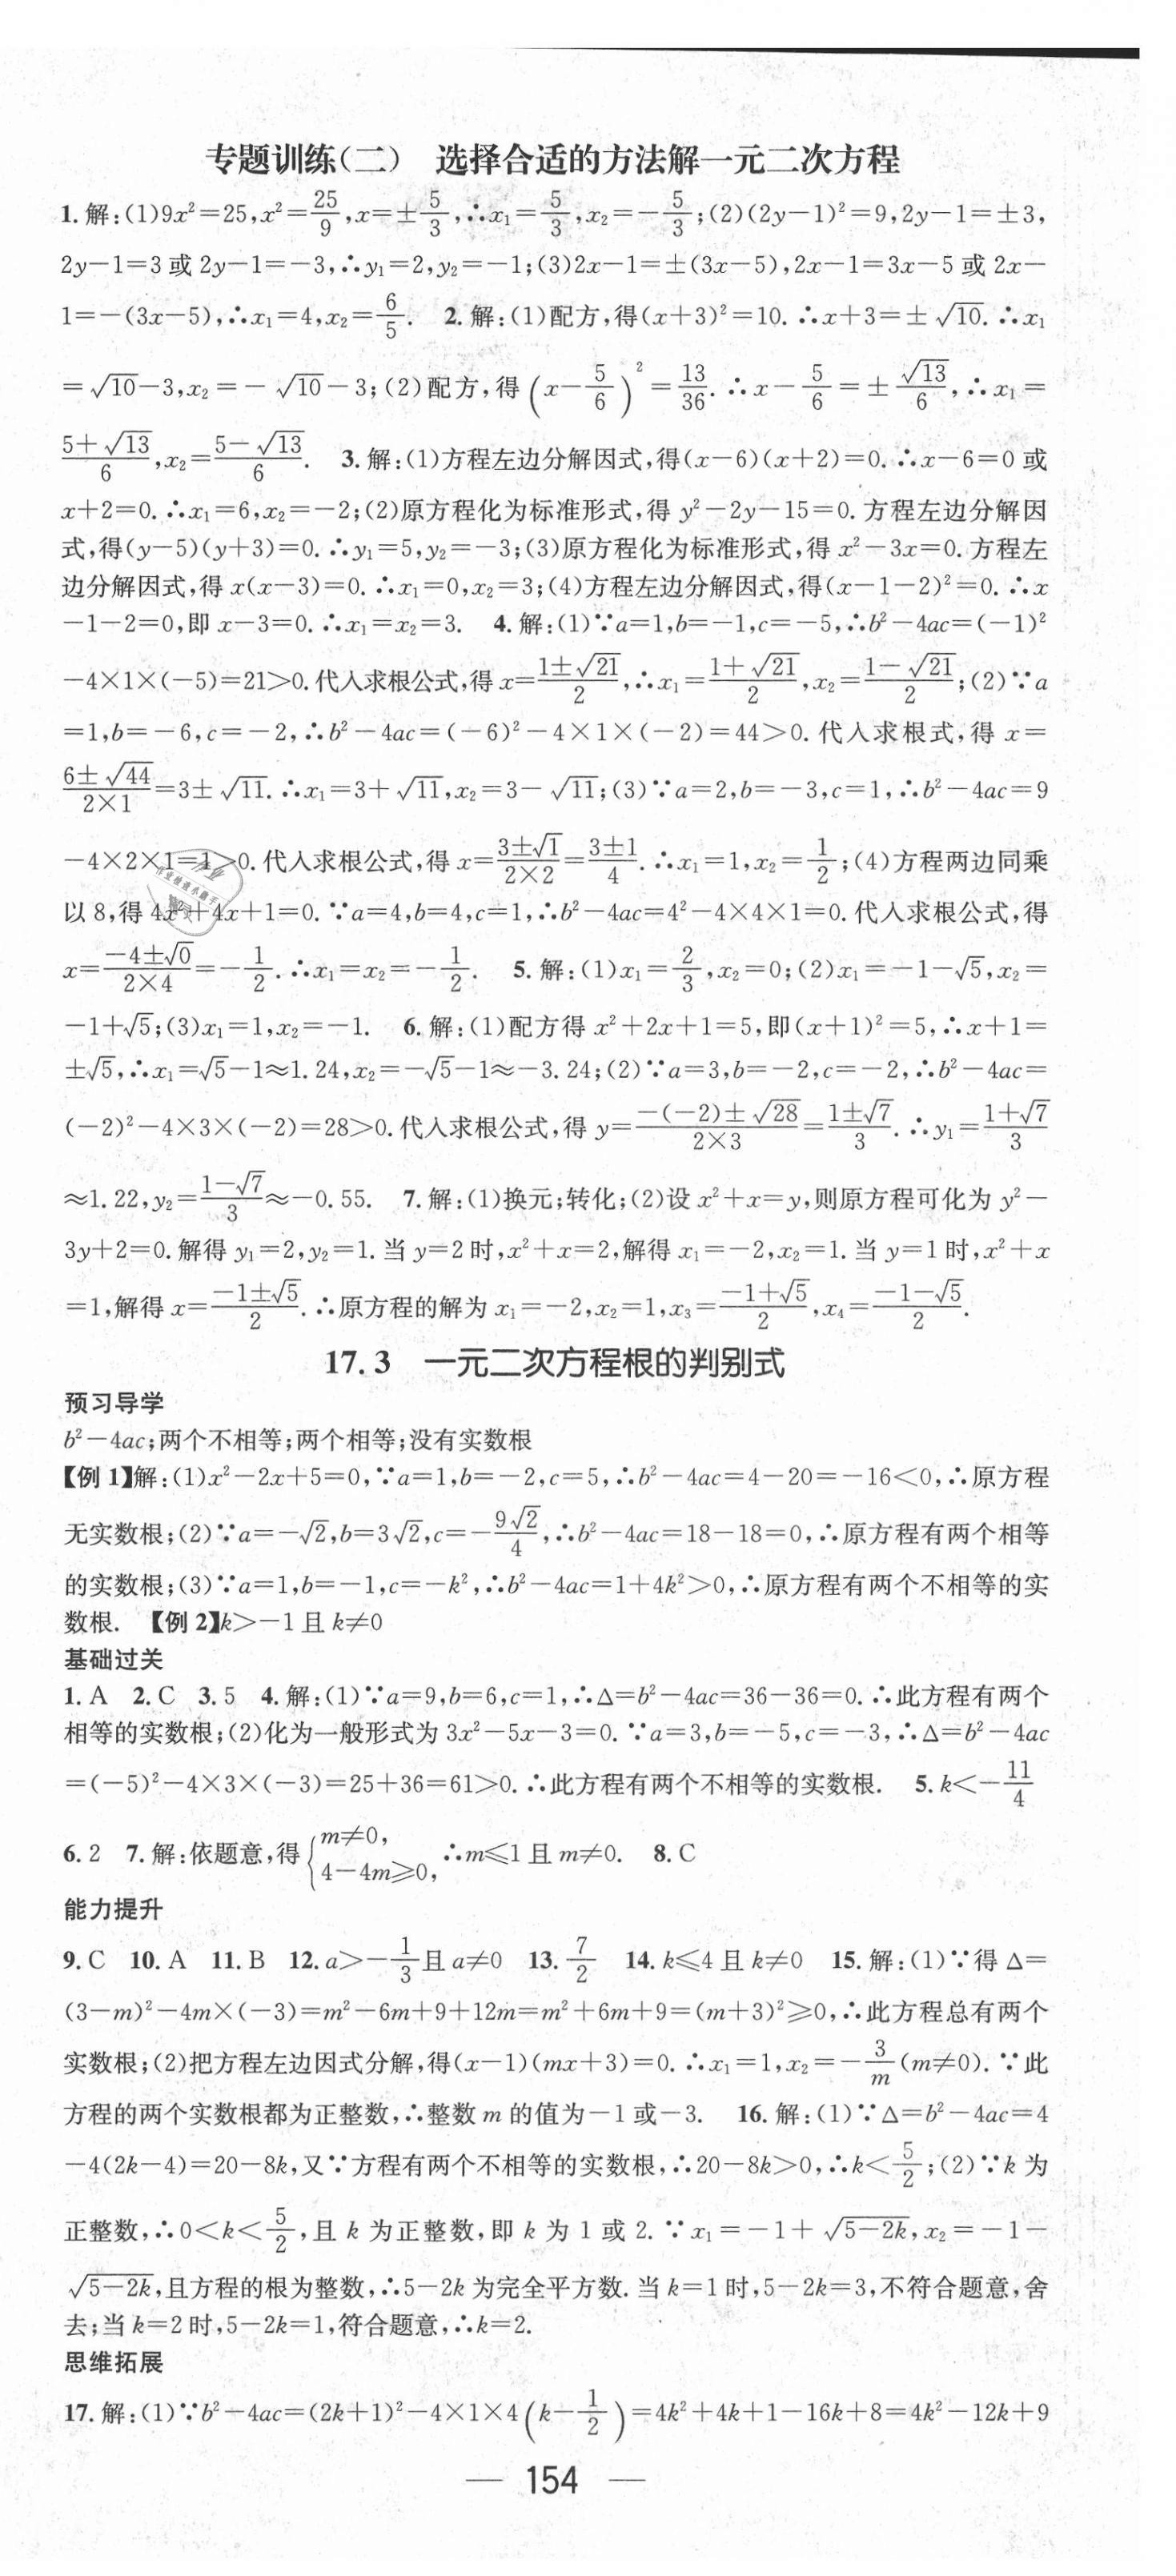 专题训练(二)　选择合适的方法解一元二次方程
1.解:(1)9x²=25,x²=25/9,x=±5/3,∴x₁=5/3,x₂=-5/3;(2)(2y-1)²=9,2y-1=±3,
2y-1=3或2y-1=-3,∴y₁=2,y₂=-1;(3)2x-1=±(3x-5),2x-1=3x-5或2x-
1=-(3x-5),∴x₁=4,x₂=6/5.　2.解:(1)配方,得(x+3)²=10.∴x+3=±√10.∴x₁
=√10-3,x₂=-√10-3;(2)配方,得(x-5/6)²=13/36.∴x-5/6=±√13/6,∴x₁=
(5+√13)/6,x₂=(5-√13)/6.　3.解:(1)方程左边分解因式,得(x-6)(x+2)=0.∴x-6=0或
x+2=0.∴x₁=6,x₂=-2;(2)原方程化为标准形式,得y²-2y-15=0.方程左边分解因
式,得(y-5)(y+3)=0.∴y₁=5,y₂=-3;(3)原方程化为标准形式,得x²-3x=0.方程左
边分解因式,得x(x-3)=0.∴x₁=0,x₂=3;(4)方程左边分解因式,得(x-1-2)²=0.∴x
-1-2=0,即x-3=0.∴x₁=x₂=3.　4.解:(1)∵a=1,b=-1,c=-5,∴b²-4ac=(-1)²
-4×1×(-5)=21>0.代入求根公式,得x=(1±√21)/2,∴x₁=(1+√21)/2,x₂=(1-√21)/2;(2)∵a
=1,b=-6,c=-2,∴b²-4ac=(-6)²-4×1×(-2)=44>0.代入求根式,得x=
(6±√44)/(2×1)=3±√11.∴x₁=3+√11,x₂=3-√11;(3)∵a=2,b=-3,c=1,∴b²-4ac=9
-4×2×1=1>0.代入求根公式,得x=(3±√1)/(2×2)=(3±1)/4.∴x₁=1,x₂=1/2;(4)方程两边同乘
以8,得4x²+4x+1=0.∵a=4,b=4,c=1,∴b²-4ac=4²-4×4×1=0.代入求根公式,得
x=(-4±√0)/(2×4)=-1/2.∴x₁=x₂=-1/2.　5.解:(1)x₁=2/3,x₂=0;(2)x₁=-1-√5,x₂=
-1+√5;(3)x₁=1,x₂=-1.　6.解:(1)配方得x²+2x+1=5,即(x+1)²=5,∴x+1=
±√5,∴x₁=√5-1≈1.24,x₂=-√5-1≈-3.24;(2)∵a=3,b=-2,c=-2,∴b²-4ac=
(-2)²-4×3×(-2)=28>0.代入求根公式,得y=(-(-2)±√28)/(2×3)=(1±√7)/3.∴y₁=(1+√7)/3
≈1.22,y₂=(1-√7)/3≈-0.55.　7.解:(1)换元;转化;(2)设x²+x=y,则原方程可化为y²-
3y+2=0.解得y₁=2,y₂=1.当y=2时,x²+x=2,解得x₁=-2,x₂=1.当y=1时,x²+x
=1,解得x=(-1±√5)/2.∴原方程的解为x₁=-2,x₂=1,x₃=(-1+√5)/2,x₄=(-1-√5)/2.
17.3　一元二次方程根的判别式
预习导学
b²-4ac;两个不相等;两个相等;没有实数根
【例1】解:(1)x²-2x+5=0,∵a=1,b=-2,c=5,∴b²-4ac=4-20=-16<0,∴原方程
无实数根;(2)∵a=-√2,b=3√2,c=-9√2/4,∴b²-4ac=18-18=0,∴原方程有两个相等
的实数根;(3)∵a=1,b=-1,c=-k²,∴b²-4ac=1+4k²>0,∴原方程有两个不相等的实
数根.　【例2】k>-1且k≠0
基础过关
1.A　2.C　3.5　4.解:(1)∵a=9,b=6,c=1,∴Δ=b²-4ac=36-36=0.∴此方程有两个
相等的实数根;(2)化为一般形式为3x²-5x-3=0.∵a=3,b=-5,c=-3,∴Δ=b²-4ac
=(-5)²-4×3×(-3)=25+36=61>0.∴此方程有两个不相等的实数根.　5.k<-11/4
6.2　7.解:依题意,得{m≠0, 4-4m≥0, ∴m≤1且m≠0.　8.C
能力提升
9.C　10.A　11.B　12.a>-1/3且a≠0　13.7/2　14.k≤4且k≠0　15.解:(1)∵得Δ=
(3-m)²-4m×(-3)=m²-6m+9+12m=m²+6m+9=(m+3)²≥0,∴此方程总有两个
实数根;(2)把方程左边因式分解,得(x-1)(mx+3)=0.∴x₁=1,x₂=-3/m(m≠0).∵此
方程的两个实数根都为正整数,∴整数m的值为-1或-3.　16.解:(1)∵Δ=b²-4ac=4
-4(2k-4)=20-8k,又∵方程有两个不相等的实数根,∴20-8k>0,∴k<5/2;(2)∵k为
正整数,∴0<k<5/2,且k为正整数,即k为1或2.∵x₁=-1+√(5-2k),x₂=-1-
√(5-2k),且方程的根为整数,∴5-2k为完全平方数.当k=1时,5-2k=3,不符合题意,舍
去;当k=2时,5-2k=1,符合题意,∴k=2.
思维拓展
17.解:(1)∵b²-4ac=(2k+1)²-4×1×4(k-1/2)=4k²+4k+1-16k+8=4k²-12k+9
— 154 —